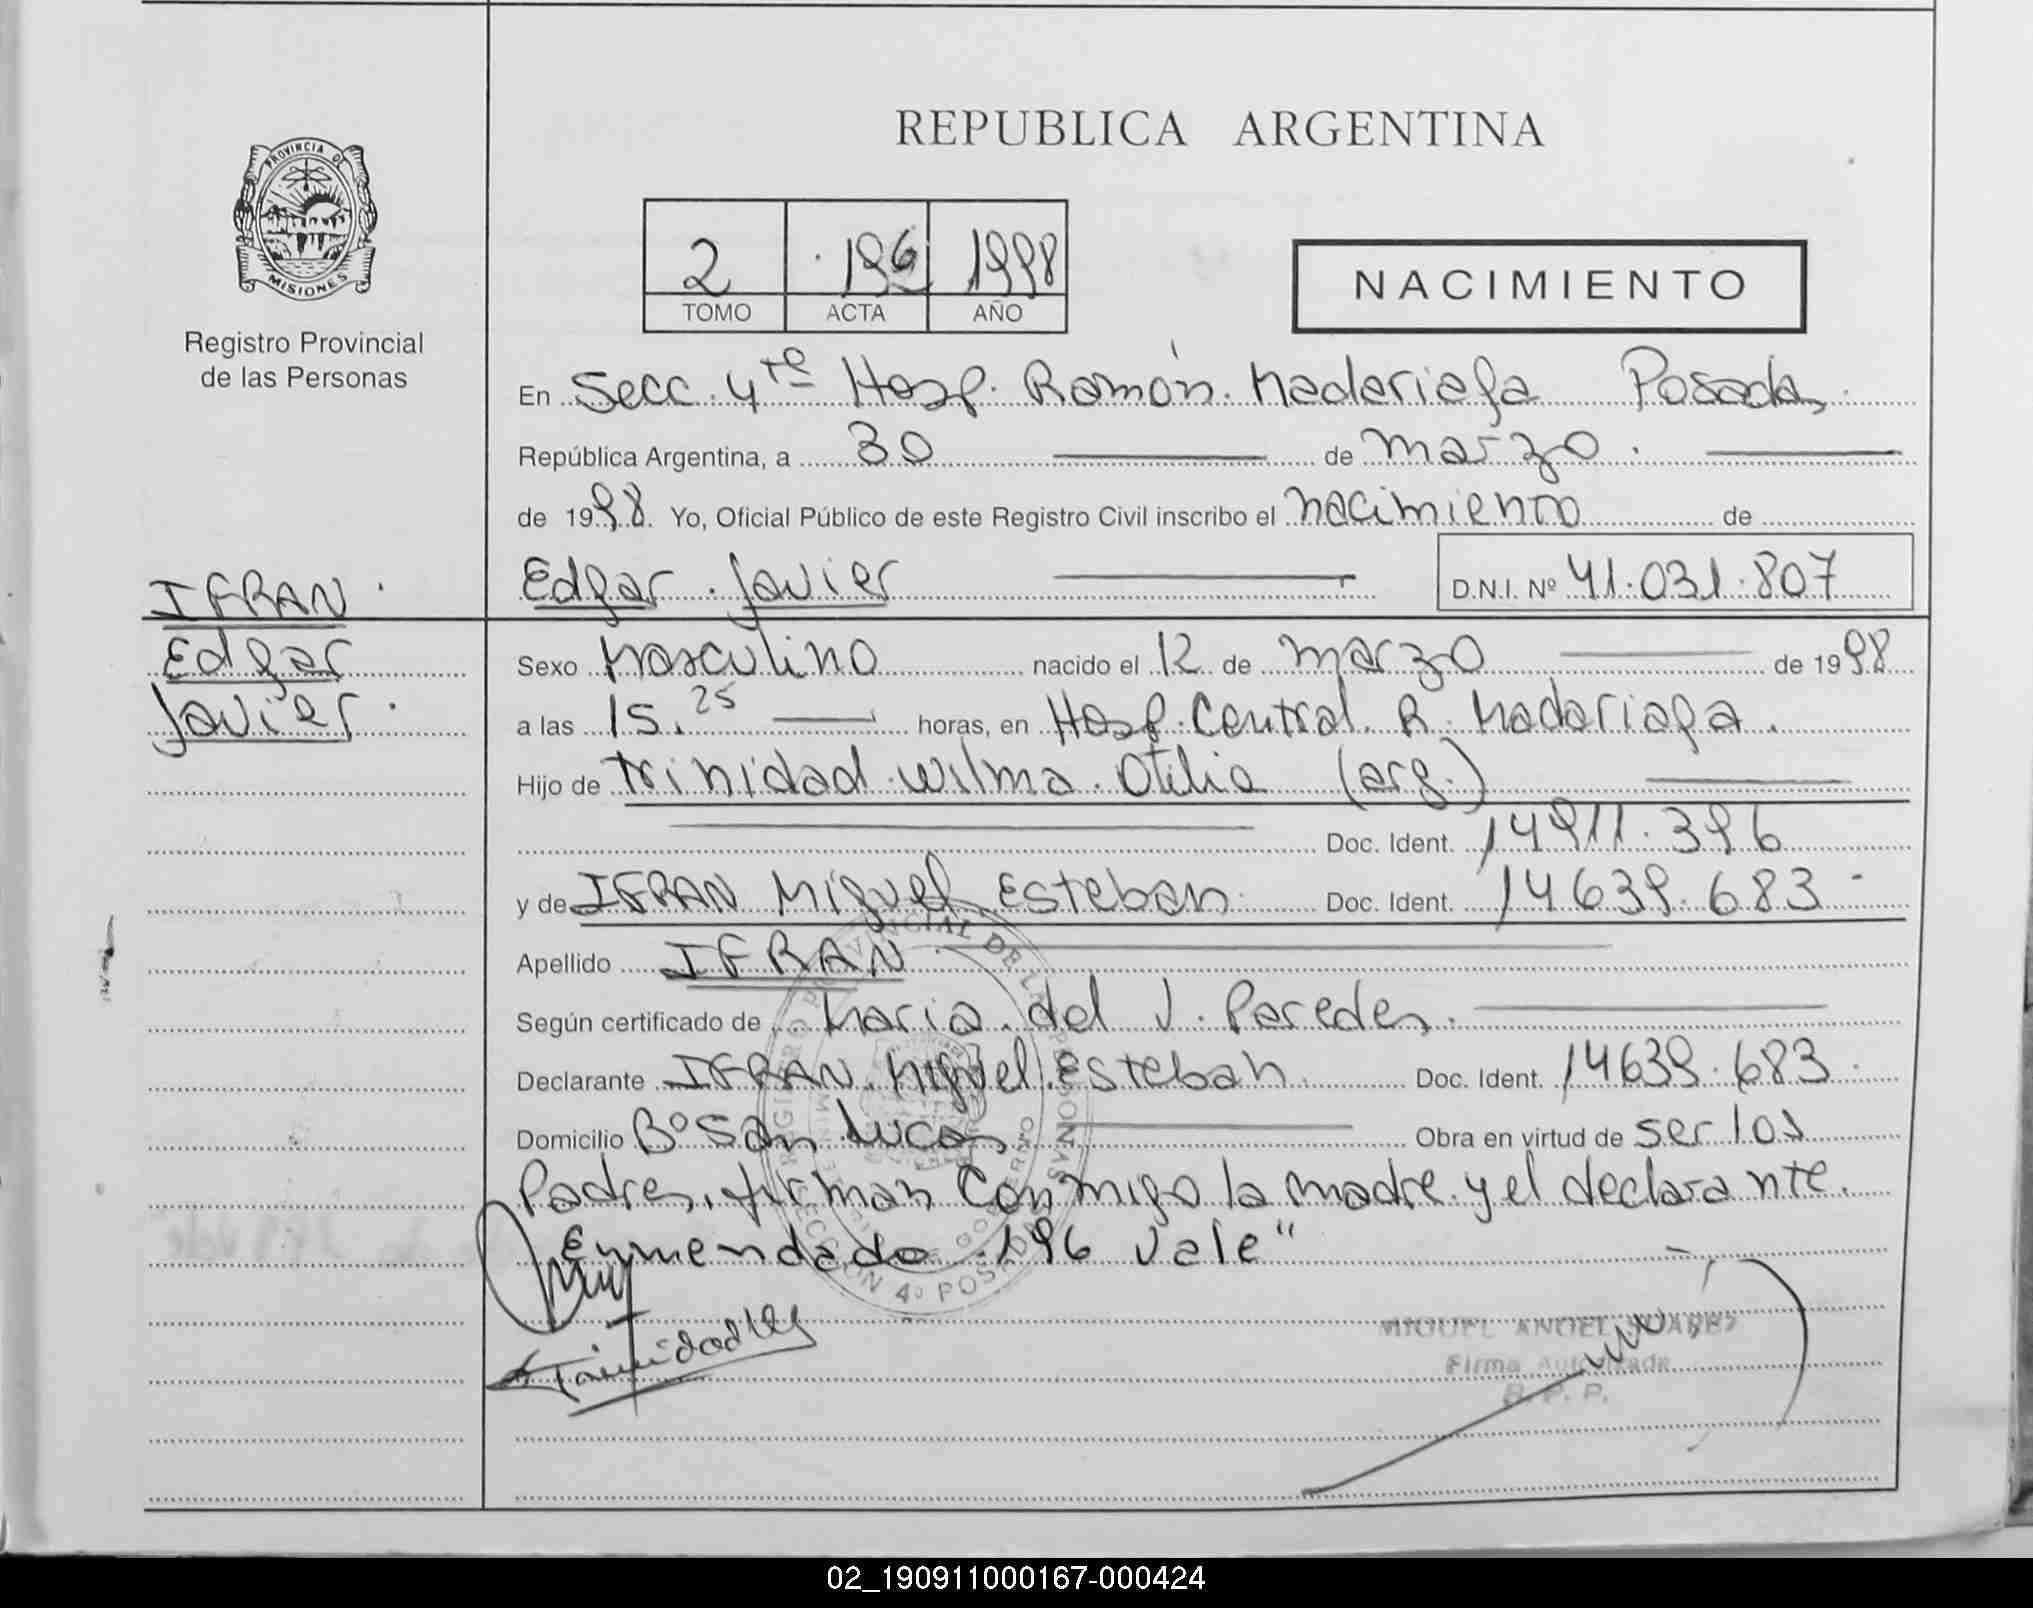 REPUBLICA ARGENTINA
PROVINCIA DE
MISIONES
Registro Provincial
de las Personas
2 196 1998
TOMO ACTA AÑO
NACIMIENTO
En Secc. 4ta Hosp. Ramón Madariaga Posadas
República Argentina, a 30 de marzo
de 1998. Yo, Oficial Público de este Registro Civil inscribo el nacimiento de
Edgar Javier D.N.I. Nº 41.031.807
IFRAN
Edgar
Javier
Sexo Masculino nacido el 12 de marzo de 1998
a las 15.25 horas, en Hosp. Central R. Madariaga.
Hijo de Trinidad Wilma Otilia (arg.)
Doc. Ident. 14911.396
y de IFRAN Miguel Esteban Doc. Ident. 14639.683
Apellido IFRAN
Según certificado de Maria del J. Paredes.
Declarante IFRAN Miguel Esteban Doc. Ident. 14639.683
Domicilio Bº San Lucas Obra en virtud de ser los
Padres, firman conmigo la madre y el declarante.
Enmendado 196 vale"
REGISTRO PROVINCIAL DE LAS PERSONAS
SECCION 4º POSADAS
MIGUEL ANGEL SUARES
Firma Autorizada
R. P. P.
02_190911000167-000424